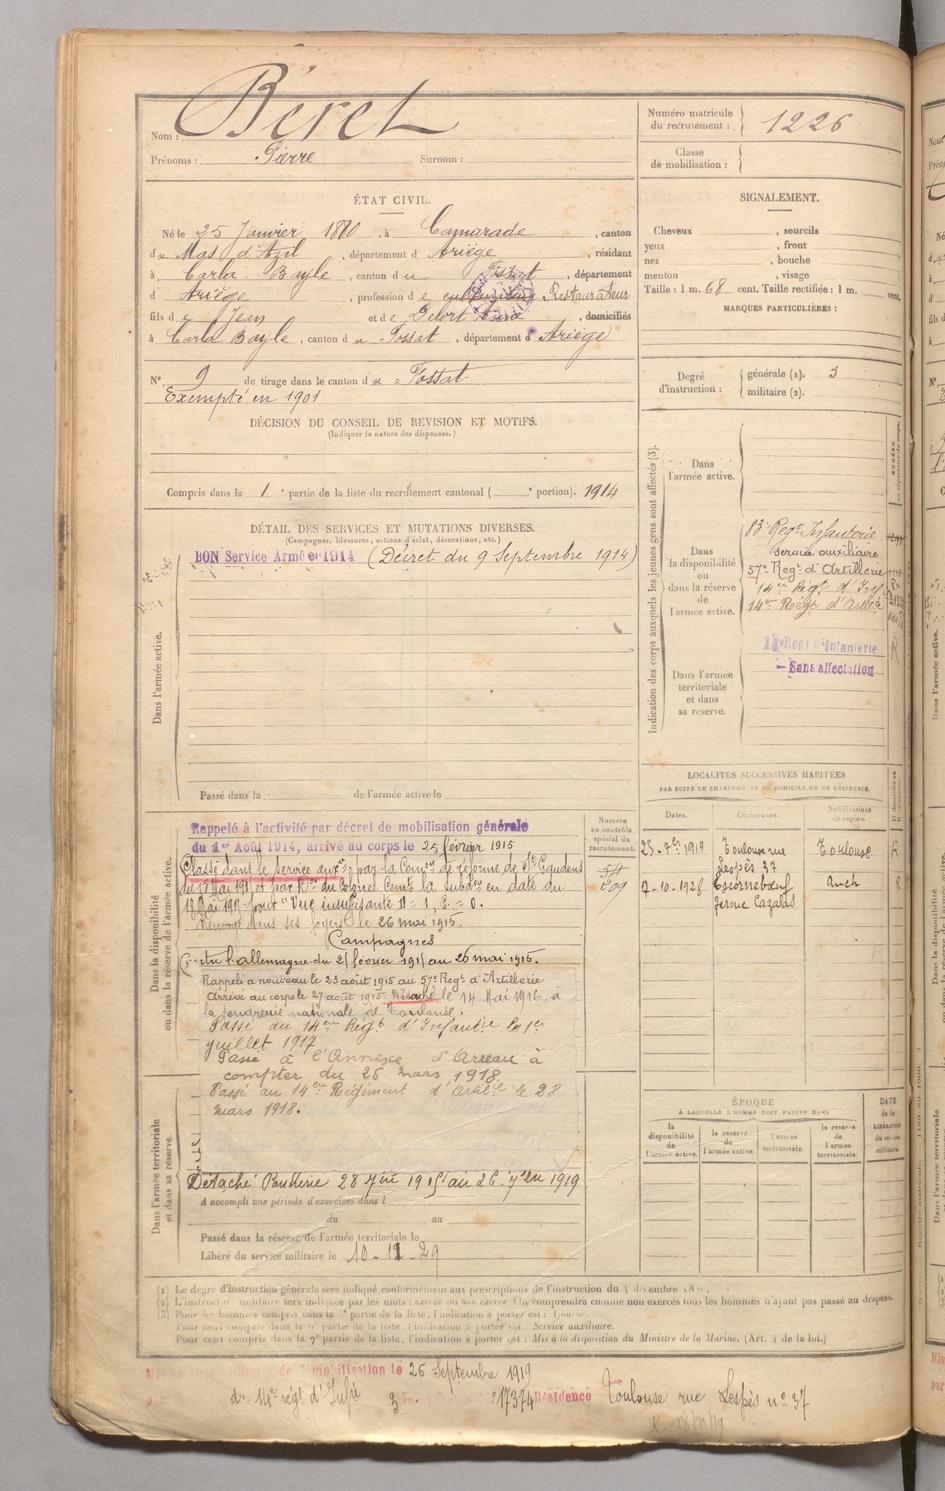 Nom : Béret
Prénoms : Pierre Surnom :
Numéro matricule du recrutement : 1226
Classe de mobilisation :
ÉTAT CIVIL.
Né le 25 Janvier 1880, à Camarade, canton
du Mas d'Azil, département d Ariège, résidant
à Carla Bayle, canton du Fossat, département
d Ariège, profession de cultivateur Restaurateur
fils de Jean et de Delort, domiciliés
à Carla Bayle, canton du Fossat, département d'Ariège
N° 9 de tirage dans le canton du Fossat
Exempté en 1901
SIGNALEMENT.
Cheveux , sourcils
yeux , front
nez , bouche
menton , visage
Taille : 1 m. 68 cent. Taille rectifiée : 1 m. cent.
MARQUES PARTICULIÈRES :
Degré d'instruction : générale (1). 3
militaire (2).
DÉCISION DU CONSEIL DE REVISION ET MOTIFS.
(Indiquer la nature des dispenses.)
Compris dans la 1e partie de la liste du recrutement cantonal ( e portion). 1914
DÉTAIL DES SERVICES ET MUTATIONS DIVERSES.
(Campagnes, blessures, actions d'éclat, décorations, etc.)
BON Service Armé en 1914 (Décret du 9 Septembre 1914)
Dans l'armée active.
Passé dans la de l'armée active le
Indication des corps auxquels les jeunes gens sont affectés (3).
Dans l'armée active.
Dans la disponibilité ou dans la réserve de l'armée active.
83e Regt Infanterie
Service auxiliaire
57e Regt d'Artillerie
14em Régt d'Inf
14em Régt d'Artie
Dans l'armée territoriale et dans sa réserve.
Regt d'Infanterie
Sans affectation
R
LOCALITÉS SUCCESSIVES HABITÉES
PAR SUITE DE CHANGEMENT DE DOMICILE OU DE RÉSIDENCE.
Dates. Communes. Subdivision de région.
23-7bre 1919 Toulouse rue Lespès 37 Toulouse R
7-10-1928 Escornebœuf ferme Cazalas Auch R
Dans la disponibilité ou dans la réserve de l'armée active.
Numéro au contrôle spécial du recrutement.
Rappelé à l'activité par décret de mobilisation générale
du 1er Août 1914, arrivé au corps le 25 février 1915
Classé dans le service auxre par la Comon de réforme de St Gaudens
du 18 Mai 1915 et par Don du Colonel Comt la Subdon en date du
18 Mai 1915 pour "Vue insuffisante
Renvoyé dans ses foyers le 26 mai 1915.
Campagnes
Contre l'allemagne du 25 février 1915 au 26 mai 1915.
Rappelé à nouveau le 23 août 1915 au 57e Regt d'Artillerie
Arrivé au corps le 27 août 1915. Détaché le 14 Mai 1916, à
la poudrerie nationale de Toulouse.
Passé du 14em Régt d'Infantie le 1er
juillet 1917
Passé à l'Annexe d'Arreau à
compter du 26 mars 1918
Passé au 14em Régiment d'Artie le 28
mars 1918.
Dans l'armée territoriale et dans sa réserve.
A accompli une période d'exercices dans l
du au
Passé dans la réserve de l'armée territoriale le
Libéré du service militaire le 10-11-29
ÉPOQUE
À LAQUELLE L'HOMME DOIT PASSER DANS
la disponibilité de l'armée active.
la réserve de l'armée active.
l'armée territoriale.
la réserve de l'armée territoriale.
DATE de la LIBÉRATION du service militaire.
(1) Le degré d'instruction générale sera indiqué conformément aux prescriptions de l'instruction du
(2) L'instruction militaire sera indiquée par les mots : exercé ou non exercé. On comprendra comme non exercés tous les hommes n'ayant pas passé au drapeau.
(3) Pour les hommes compris dans la partie de la liste, l'indication à porter est :
Pour ceux compris dans la partie de la liste, l'indication à porter est : Service auxiliaire.
Pour ceux compris dans la 7e partie de la liste, l'indication à porter est : Mis à la disposition du Ministre de la Marine. (Art. 4 de la loi.)
mobilisation le 26 Septembre 1919
régt d'Infie 3 17374 Résidence Toulouse rue Lespès n° 37